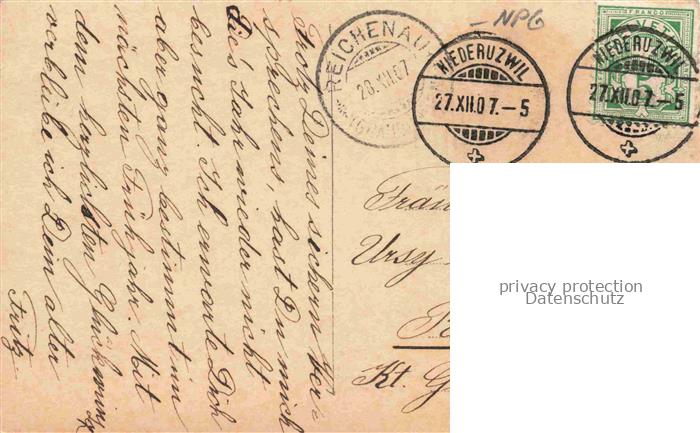 NPG
REICHENAU
28.XII.07
NIEDERUZWIL
27.XII.07.-5
FRANCO
HELVETIA
NIEDERUZWIL
27.XII.07.-5
Trotz Deines sichern Ver-
sprechens, hast Du mich
dies Jahr wieder nicht
besucht. Ich erwarte Dich
aber ganz bestimmt im
nächsten Frühjahr. Mit
dem herzlichsten Glückwunsch
verbleibe ich Dein alter
Fritz
Fräu
Ursy
Kt. G
privacy protection
Datenschutz